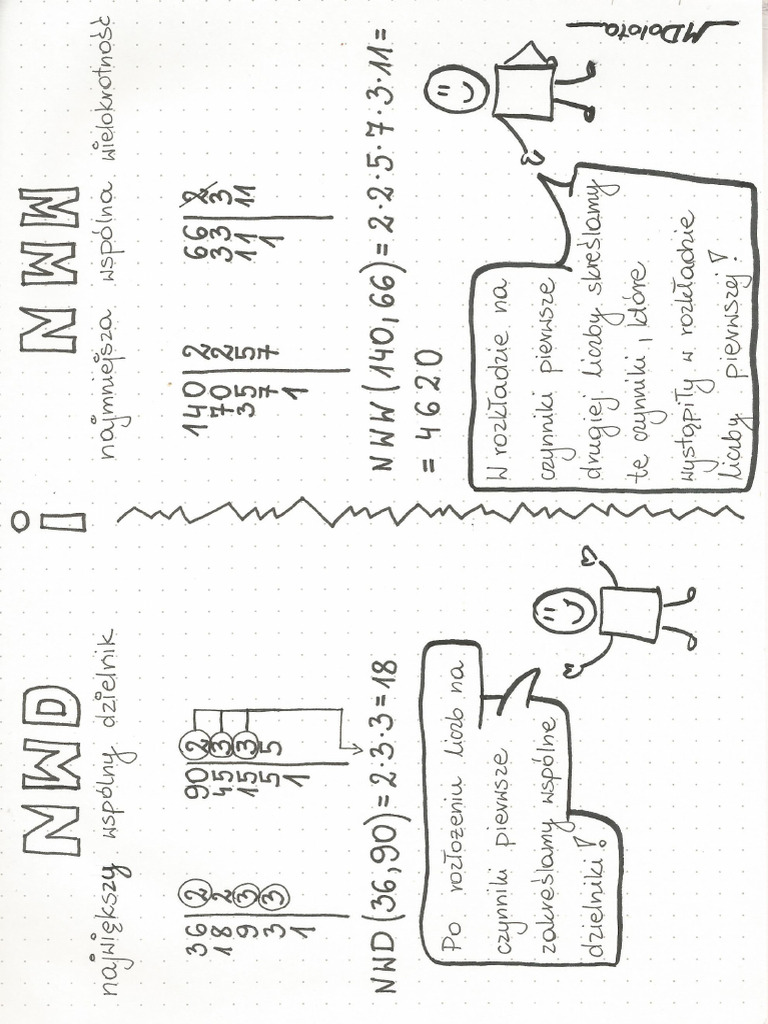 NWD i NWW
największy wspólny dzielnik
36 | 2
18 | 2
9 | 3
3 | 3
1
90 | 2
45 | 3
15 | 3
5 | 5
1
NWD (36,90) = 2·3·3 = 18
Po rozłożeniu liczb na
czynniki pierwsze
zakreślamy wspólne
dzielniki!
najmniejsza wspólna wielokrotność
140 | 2
70 | 2
35 | 5
7 | 7
1
66 | 2
33 | 3
11 | 11
1
NWW (140,66) = 2·2·5·7·3·11 =
= 4620
W rozkładzie na
czynniki pierwsze
drugiej liczby skreślamy
te czynniki, które
wystąpiły w rozkładzie
liczby pierwszej!
MDolota